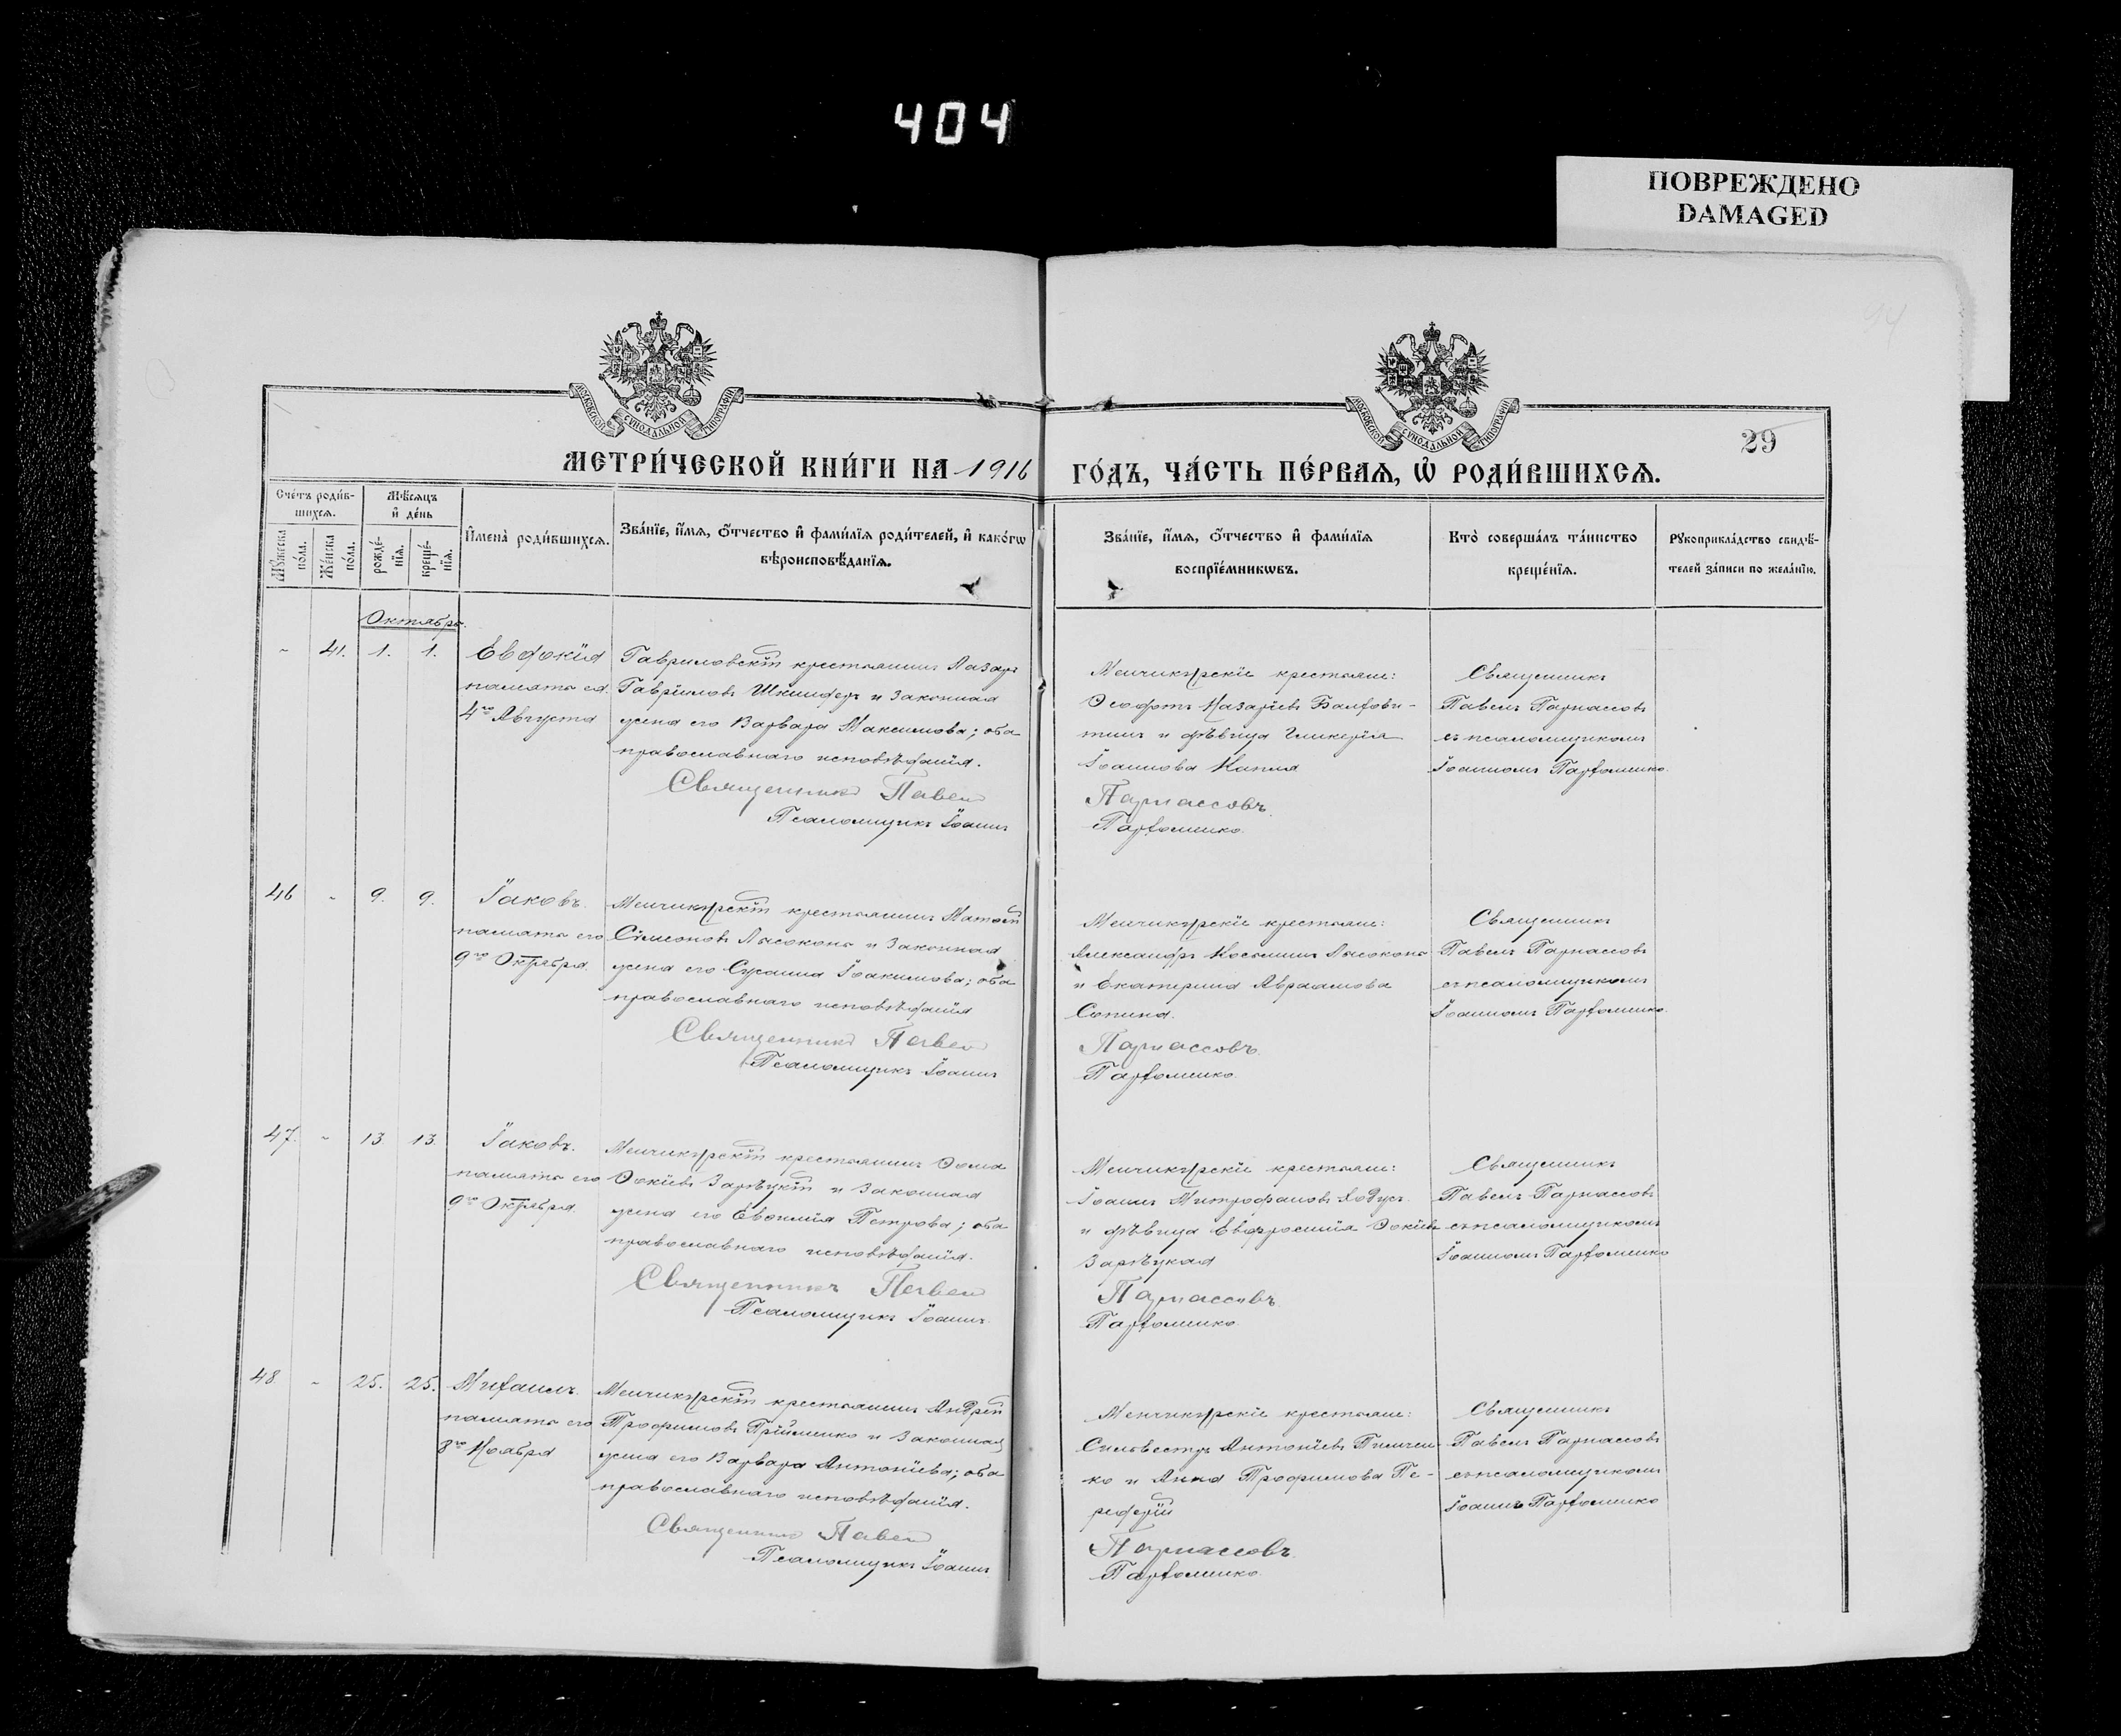 404
ПОВРЕЖДЕНО
DAMAGED
МОСКОВСКОЙ СѴНОДАЛЬНОЙ ТИПОГРАФІИ
МОСКОВСКОЙ СѴНОДАЛЬНОЙ ТИПОГРАФІИ
94
29
МЕТРИ́ЧЕСКОЙ КНИ́ГИ НА 1916 ГО́ДЪ, ЧА́СТЬ ПЕ́РВАѦ, Ѽ РОДИ́ВШИХСѦ.
Сче́тъ роди́в-
шихсѧ.
Мѣ́сѧцъ
и҆ де́нь
Мꙋ́жеска
по́ла.
Же́нска
по́ла.
рожде́-
нїѧ.
креще́-
нїѧ.
И҆мена̀ роди́вшихсѧ.
Зва́нїе, и҆́мѧ, ѻ҆́тчество и҆ фами́лїѧ роди́телей, и҆ како́гѡ
вѣроисповѣ́данїѧ.
Зва́нїе, и҆́мѧ, ѻ҆́тчество и҆ фами́лїѧ
воспрїе́мникѡвъ.
Кто̀ соверша́лъ та́инство
креще́нїѧ.
Рꙋкоприкла́дство свидѣ́-
телей за́писи по жела́нїю.
Октябрь.
- 41. 1. 1.
Евдокія
память ея
4го Августа
Гавриловскій крестьянинъ Лазарь
Гавріиловъ Шкиндеръ и законная
жена его Варвара Максимова; оба
православнаго исповѣданія.
Священникъ Павелъ
Псаломщикъ Іоаннъ
Менчикурскіе крестьяне:
Ѳеофотъ Назаріевъ
и дѣвица Гликерія
Іоаннова Капля
Парнассовъ.
Пархоменко.
Священникъ
Павелъ Парнассовъ
съ псаломщикомъ
Іоанномъ Пархоменко.
46 - 9. 9.
Іаковъ.
память его
9го Октября.
Менчикурскій крестьянинъ Матѳей
Симеоновъ Лысоконь и законная
жена его Сусанна Іоакимова; оба
православнаго исповѣданія
Священникъ Павелъ
Псаломщикъ Іоаннъ
Менчикурскіе крестьяне:
Александръ Косьминъ Лысоконь
и Екатерина Авраамова
Сопина.
Парнассовъ.
Пархоменко.
Священникъ
Павелъ Парнассовъ
съ псаломщикомъ
Іоанномъ Пархоменко.
47. - 13. 13.
Іаковъ.
память его
9го Октября.
Менчикурскій крестьянинъ Ѳома
Ѳокіевъ Зарѣцкій и законная
жена его Евѳимія Петрова; оба
православнаго исповѣданія.
Священникъ Павелъ
Псаломщикъ Іоаннъ
Менчикурскіе крестьяне:
Іоаннъ Митрофановъ Ходусъ.
и дѣвица Евфросинія Ѳокіева
Зарѣцкая
Парнассовъ.
Пархоменко
Священникъ
Павелъ Парнассовъ
съ псаломщикомъ
Іоанномъ Пархоменко
48 - 25. 25.
Михаилъ.
память его
8го Ноября
Менчикурскій крестьянинъ Андрей
Трофимовъ Прійменко и законная
жена его Варвара Антоніева; оба
православнаго исповѣданія.
Священникъ Павелъ
Псаломщикъ Іоаннъ
Менчикурскіе крестьяне:
Сильвестръ Антоніевъ Пиличен-
ко и Анна Трофимова Пе-
редерій
Парнассовъ.
Пархоменко.
Священникъ
Павелъ Парнассовъ
съ псаломщикомъ
Іоаннъ Пархоменко